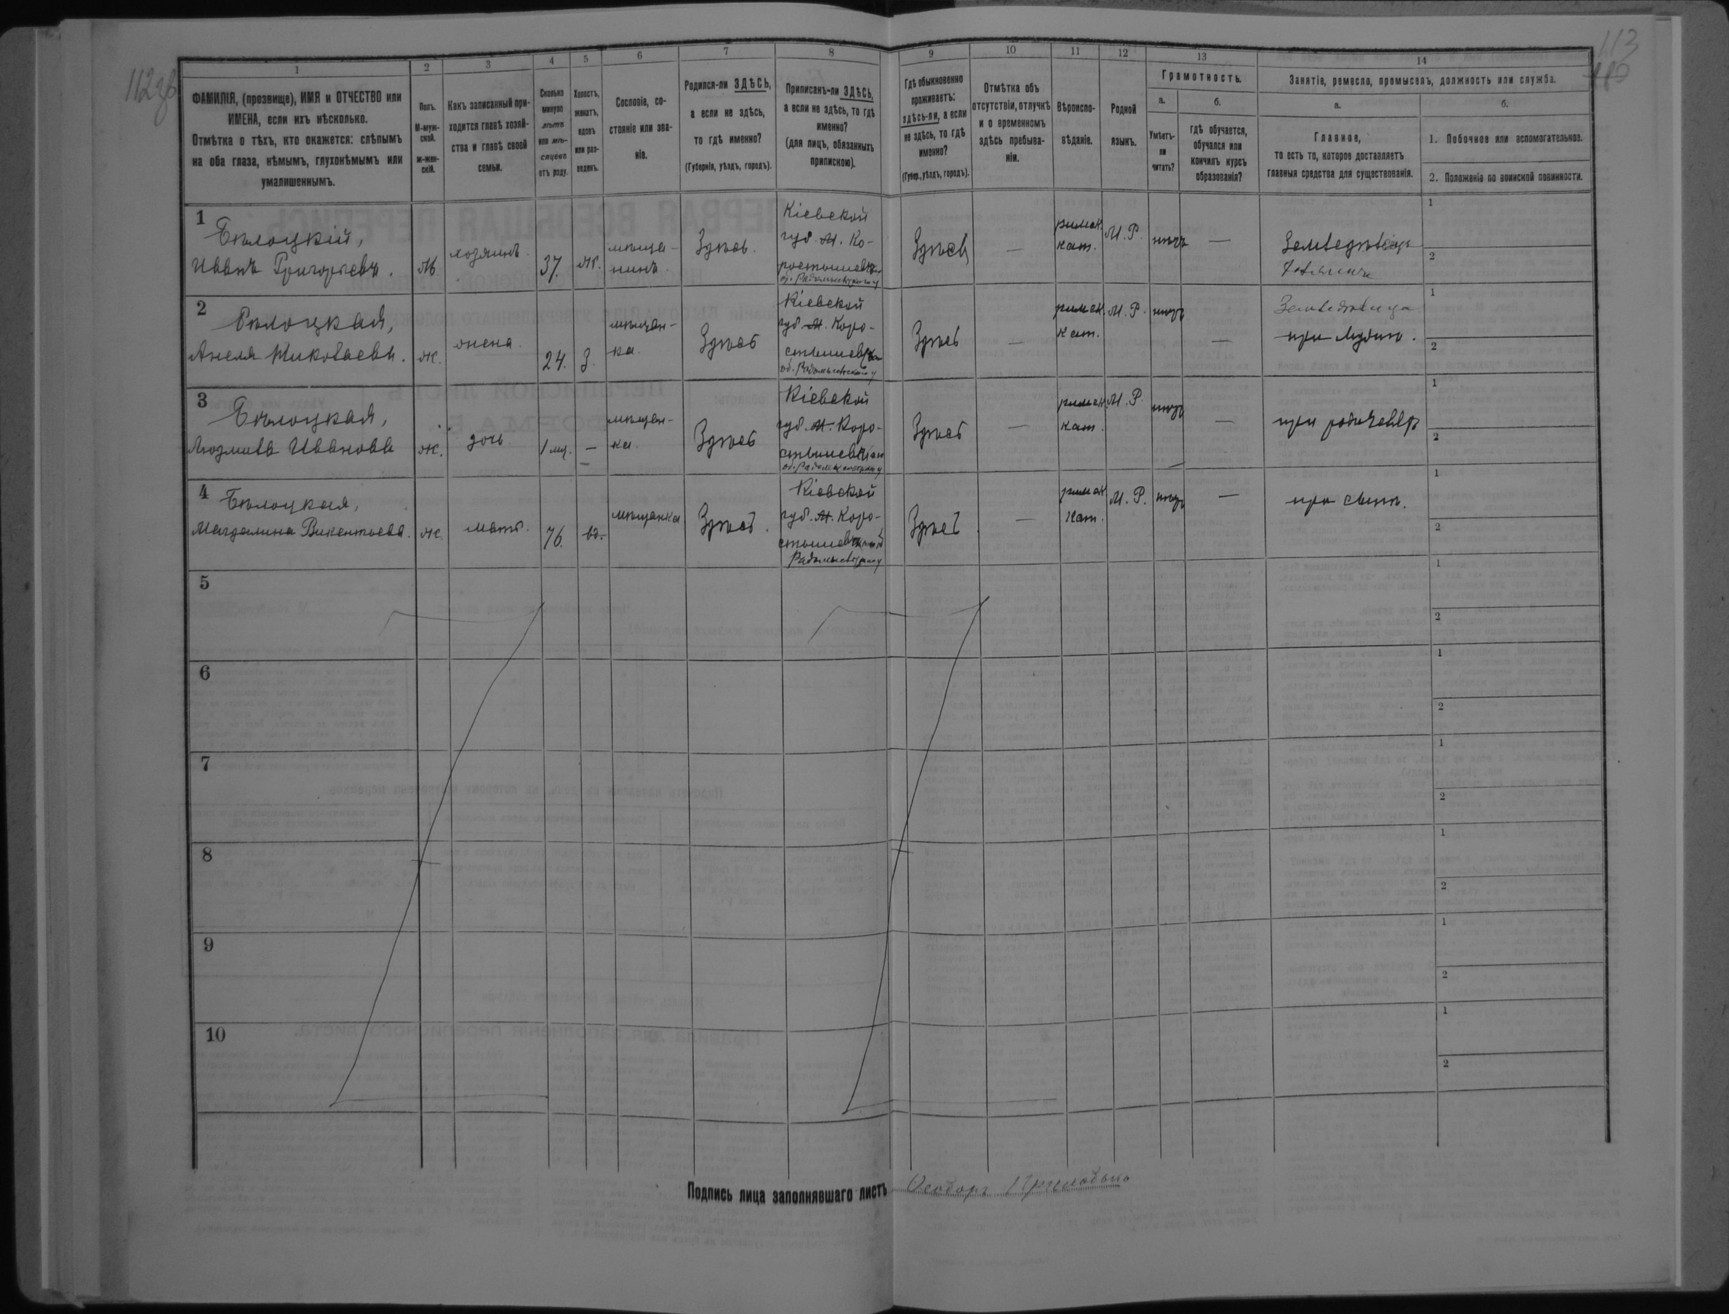 112об
113
1
2
3
4
5
6
7
8
9
10
11
12
13
14
ФАМИЛІЯ, (прозвище), ИМЯ и ОТЧЕСТВО или
ИМЕНА, если ихъ нѣсколько.
Отмѣтка о тѣхъ, кто окажется: слѣпымъ
на оба глаза, нѣмымъ, глухонѣмымъ или
умалишеннымъ.
Полъ.
М-муж-
ской.
Ж-жен-
скій.
Какъ записанный при-
ходится главѣ хозяй-
ства и главѣ своей
семьи.
Сколько
минуло
лѣтъ
или мѣ-
сяцевъ
отъ роду.
Холостъ,
женатъ,
вдовъ
или раз-
веденъ.
Сословіе, со-
стояніе или зва-
ніе.
Родился-ли ЗДѢСЬ,
а если не здѣсь,
то гдѣ именно?
(Губернія, уѣздъ, городъ).
Приписанъ-ли ЗДѢСЬ,
а если не здѣсь, то гдѣ
именно?
(для лицъ, обязанныхъ
припискою).
Гдѣ обыкновенно
проживаетъ:
здѣсь-ли, а если
не здѣсь, то гдѣ
именно?
(Губер., уѣздъ, городъ).
Отмѣтка объ
отсутствіи, отлучкѣ
и о временномъ
здѣсь пребыва-
ніи.
Вѣроиспо-
вѣданіе.
Родной
языкъ.
Грамотность.
а.
Умѣетъ-
ли
читать?
б.
гдѣ обучается,
обучался или
кончилъ курсъ
образованія?
Занятіе, ремесло, промыселъ, должность или служба.
а.
Главное,
то есть то, которое доставляетъ
главныя средства для существованія.
б.
1. Побочное или вспомогательное.
2. Положеніе по воинской повинности.
1
Бѣлоцкій,
Иванъ Григорьевъ.
М
хозяинъ
37.
ж.
мѣща-
нинъ
Здѣсь.
Кіевской
губ. М. Ко-
ростышевк
об. Радомысльскаго у
Здѣсь
—
римск.
кат.
М. Р.
нѣтъ
—
1
2
2
Бѣлоцкая,
Анеля Николаевн.
ж.
жена
24.
З.
мѣщан-
ка.
Здѣсь
Кіевской
губ. М. Коро-
стышевк
об. Радомысльскаго у
Здѣсь
—
римск.
кат.
М. Р.
нѣтъ
—
при мужѣ.
1
2
3
Бѣлоцкая,
Людмила Иванова
ж.
дочь
1 мц.
—
мѣщан-
ка.
Здѣсь
Кіевской
губ. М. Коро-
стышевк
об. Радомысльскаго у
Здѣсь
—
римск.
кат.
М. Р.
нѣтъ
—
при родителѣ
1
2
4
Бѣлоцкая,
Магдалина Викентьева.
ж.
мать.
76.
вд.
мѣщанка
Здѣсь.
Кіевской
губ. М. Коро-
стышевк
Радомысльскаго у
Здѣсь.
—
римск.
кат.
М. Р.
нѣтъ
—
при сынѣ.
1
2
5
1
2
6
1
2
7
1
2
8
1
2
9
1
2
10
1
2
Подпись лица заполнявшаго листъ